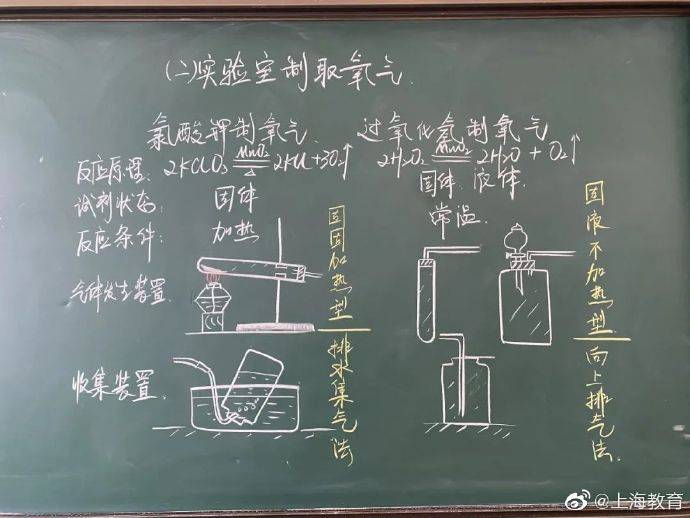 (二)实验室制取氧气.
氯酸钾制氧气. 过氧化氢制氧气
反应原理: 2KClO₃ MnO₂ △ 2KCl+3O₂↑ 2H₂O₂ MnO₂ 2H₂O+O₂↑
试剂状态: 固体 固体.液体.
反应条件: 加热 常温.
气体发生装置.
收集装置.
固固加热型
排水集气法
固液不加热型
向上排气法.
@上海教育